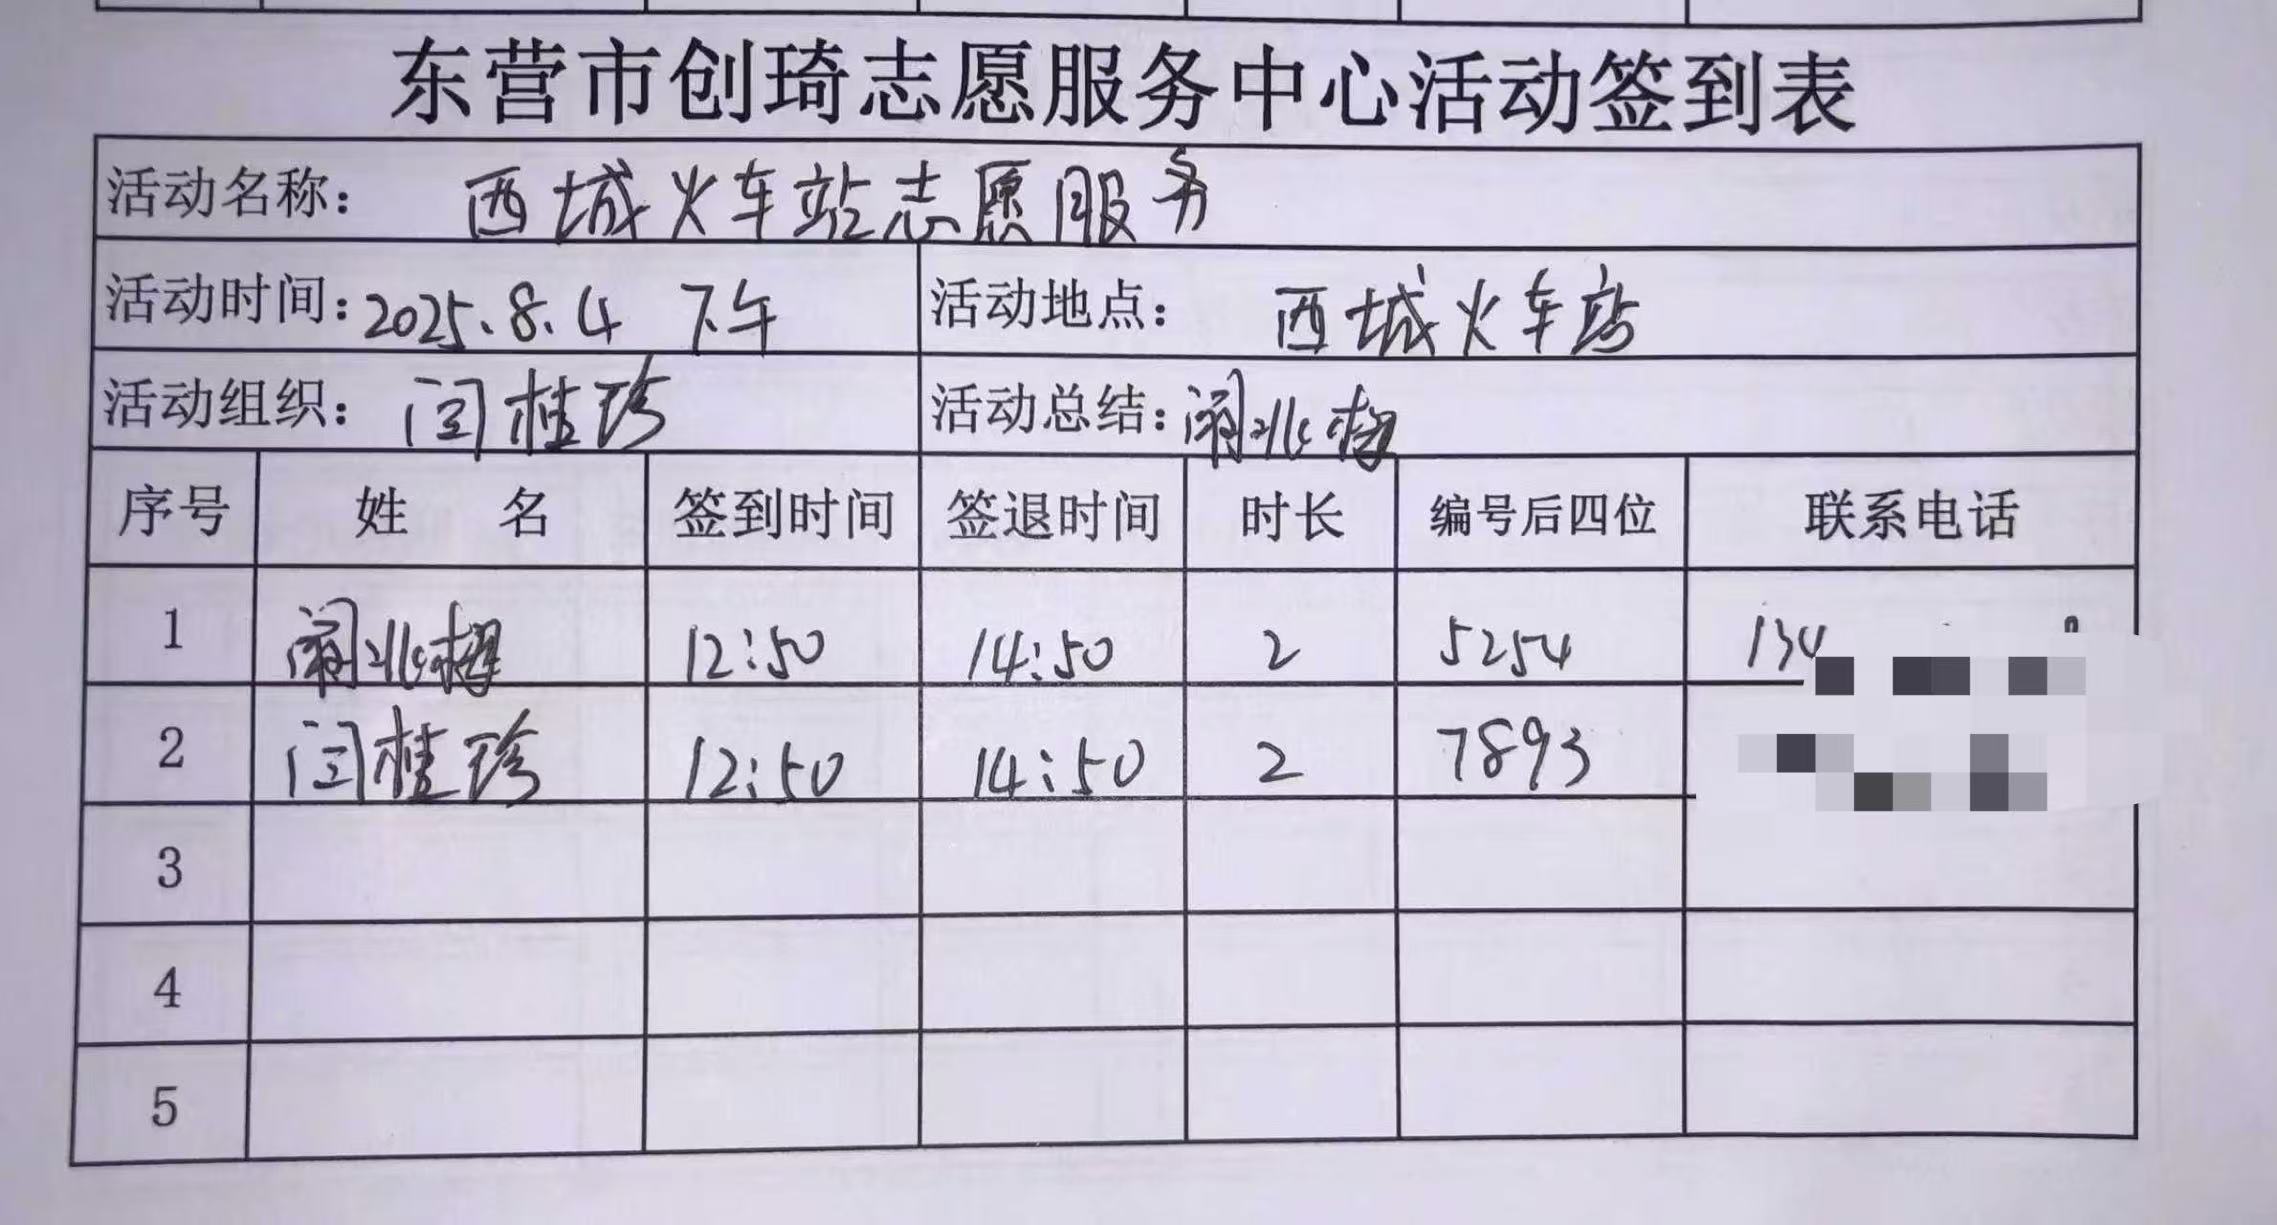 东营市创琦志愿服务中心活动签到表
活动名称： 西城火车站志愿服务
活动时间：2025.8.4 下午 活动地点： 西城火车站
活动组织： 闫桂珍 活动总结：
序号 姓 名 签到时间 签退时间 时长 编号后四位 联系电话
1 12:50 14:50 2 5254 134
2 闫桂珍 12:50 14:50 2 7893
3
4
5